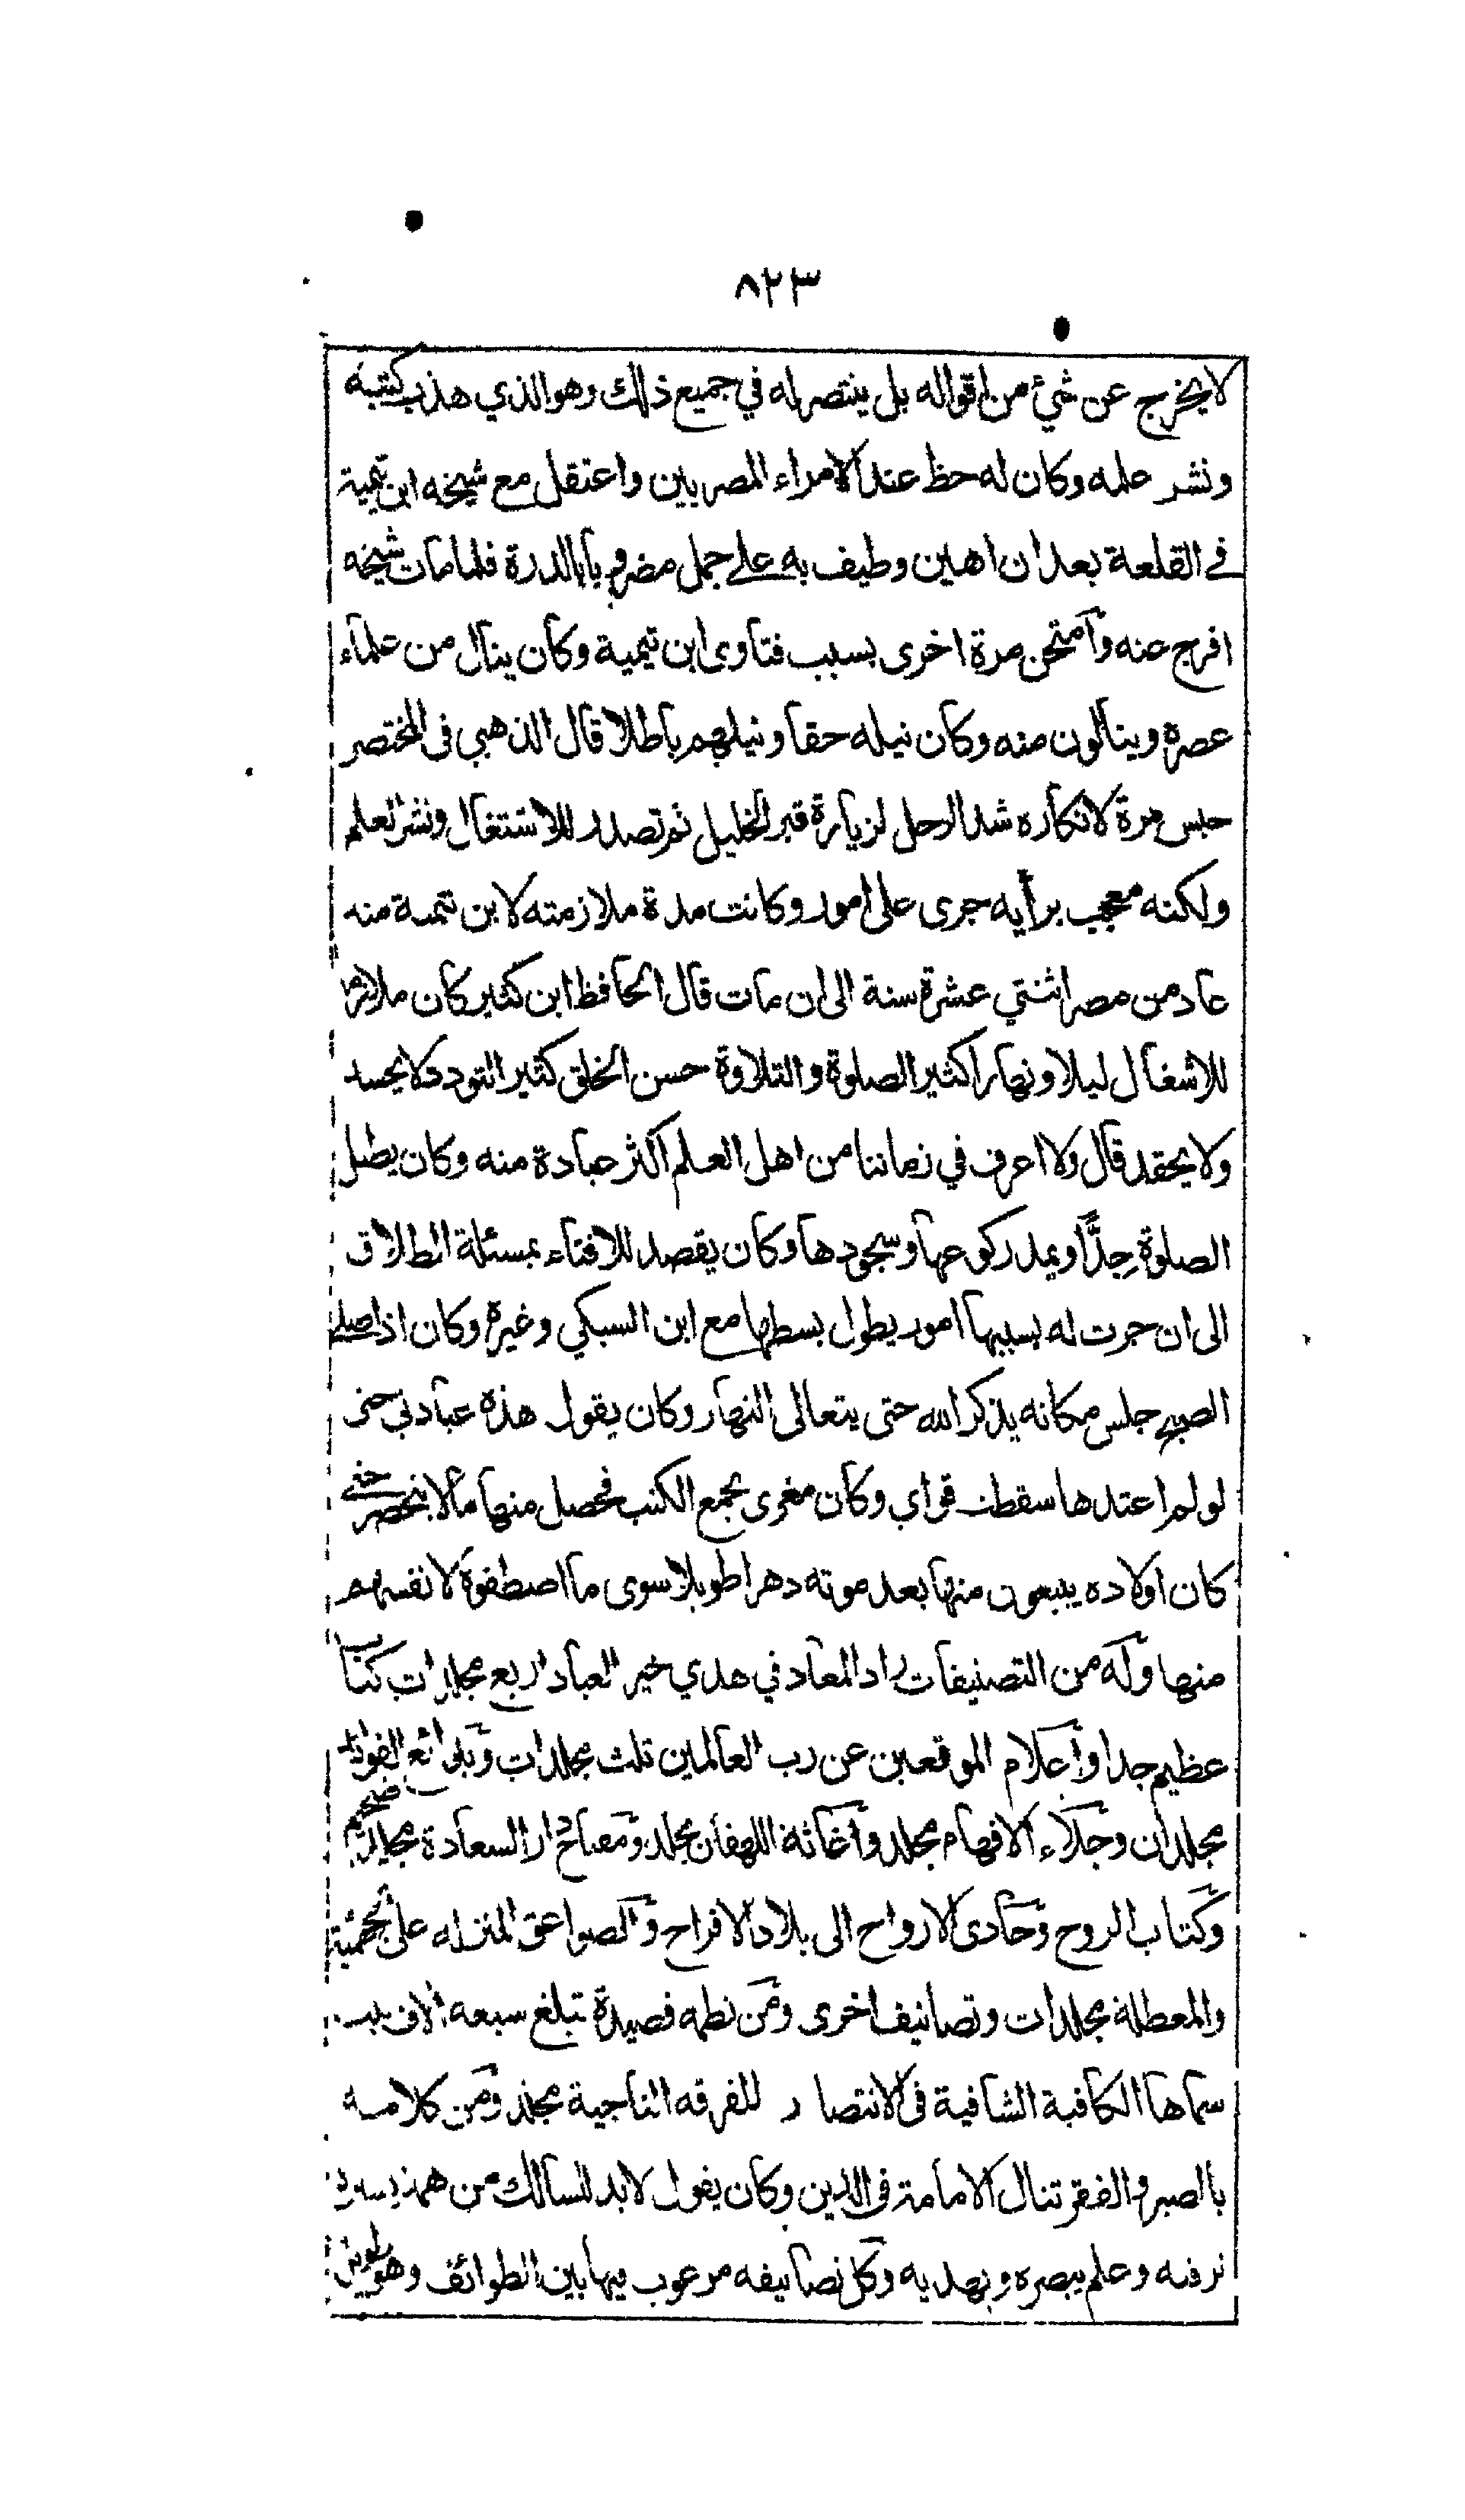 ٨٢٣
لا يخرج عن شئ من اقواله بل ينتصر له في جميع ذلك وهو الذي هذب كتبه
ونشر علمه وكان له حظ عند الامراء المصريين واعتقل مع شيخه ابن تيمية
في القلعة بعد ان اهين وطيف به على جمل مضروبا بالدرة فلما مات شيخه
افرج عنه وامتحن مرة اخرى بسبب فتاوى ابن تيمية وكان ينال من علماء
عصره وينالون منه وكان نيله حقا ونيلهم باطلا قال الذهبي فى المختصر
حبس مرة لانكاره شد الرحل لزيارة قبر الخليل ثم تصدر للاشتغال ونشر العلم
ولكنه معجب برأيه جرى على امور وكانت مدة ملازمته لابن تيمية منه
عاد من مصر اثنتي عشرة سنة الى ان مات قال الحافظ ابن كثير كان ملازما
للاشغال ليلا ونهارا كثير الصلوة والتلاوة حسن الخلق كثير التودد لا يحسد
ولا يحقد قال ولا اعرف في زماننا من اهل العلم اكثر عبادة منه وكان يطيل
الصلوة جدًّا ويمد ركوعها وسجودها وكان يقصد للافتاء بمسئلة الطلاق
الى ان جرت له بسببها امور يطول بسطها مع ابن السبكي وغيره وكان اذا صلى
الصبح جلس مكانه يذكر الله حتى يتعالى النهار وكان يقول هذه عبادتي حتى
لو لم اعتدها سقطت قواي وكان مغرى بجمع الكتب فحصل منها ما لا ينحصر حتى
كان اولاده يبيعون منها بعد موته دهرا طويلا سوى ما اصطفوة لانفسهم
منها وله من التصنيفات زاد المعاد في هدي خير العباد اربع مجلدات كتاب
عظيم جدا واعلام الموقعين عن رب العالمين ثلث مجلدات وبدائع الفوائد
مجلدان وجلاء الافهام مجلد واغاثة اللهفان مجلد ومفتاح دار السعادة مجلد ضخم
وكتاب الروح وحادى الارواح الى بلاد الافراح والصواعق المنزله على الجهمية
والمعطلة مجلدات وتصانيف اخرى ومن نظمه قصيدة تبلغ سبعه الاف بيت
سماها الكافية الشافية فى الانتصار للفرقه الناجية مجلد ومن كلامه
بالصبر والفقر تنال الامامة فى الدين وكان يقول لابد للسالك من همة تسيره
ترقيه وعلم يبصره ويهديه وكل تصانيفه مرغوب فيها بين الطوائف وهو طويل